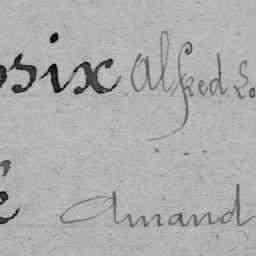 osix Alfred Lo
Amand